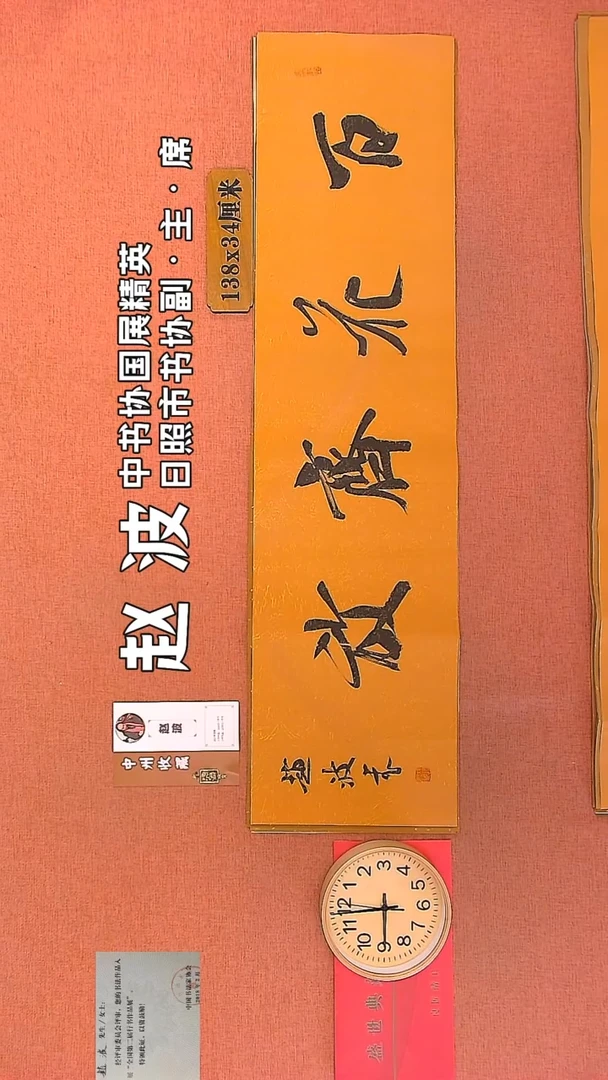 赵 波
中书协国展精英
日照市书协副·主·席
138x34厘米
百花齊放
趙波书
赵波
中州收藏
12
1
2
3
4
5
6
7
8
9
10
11
波 先生/女士:
经评审委员会评审，您的书法作品入
"全国第二届行书作品展"，
特颁此证，以资鼓励!
中国书法家协会
盛世典